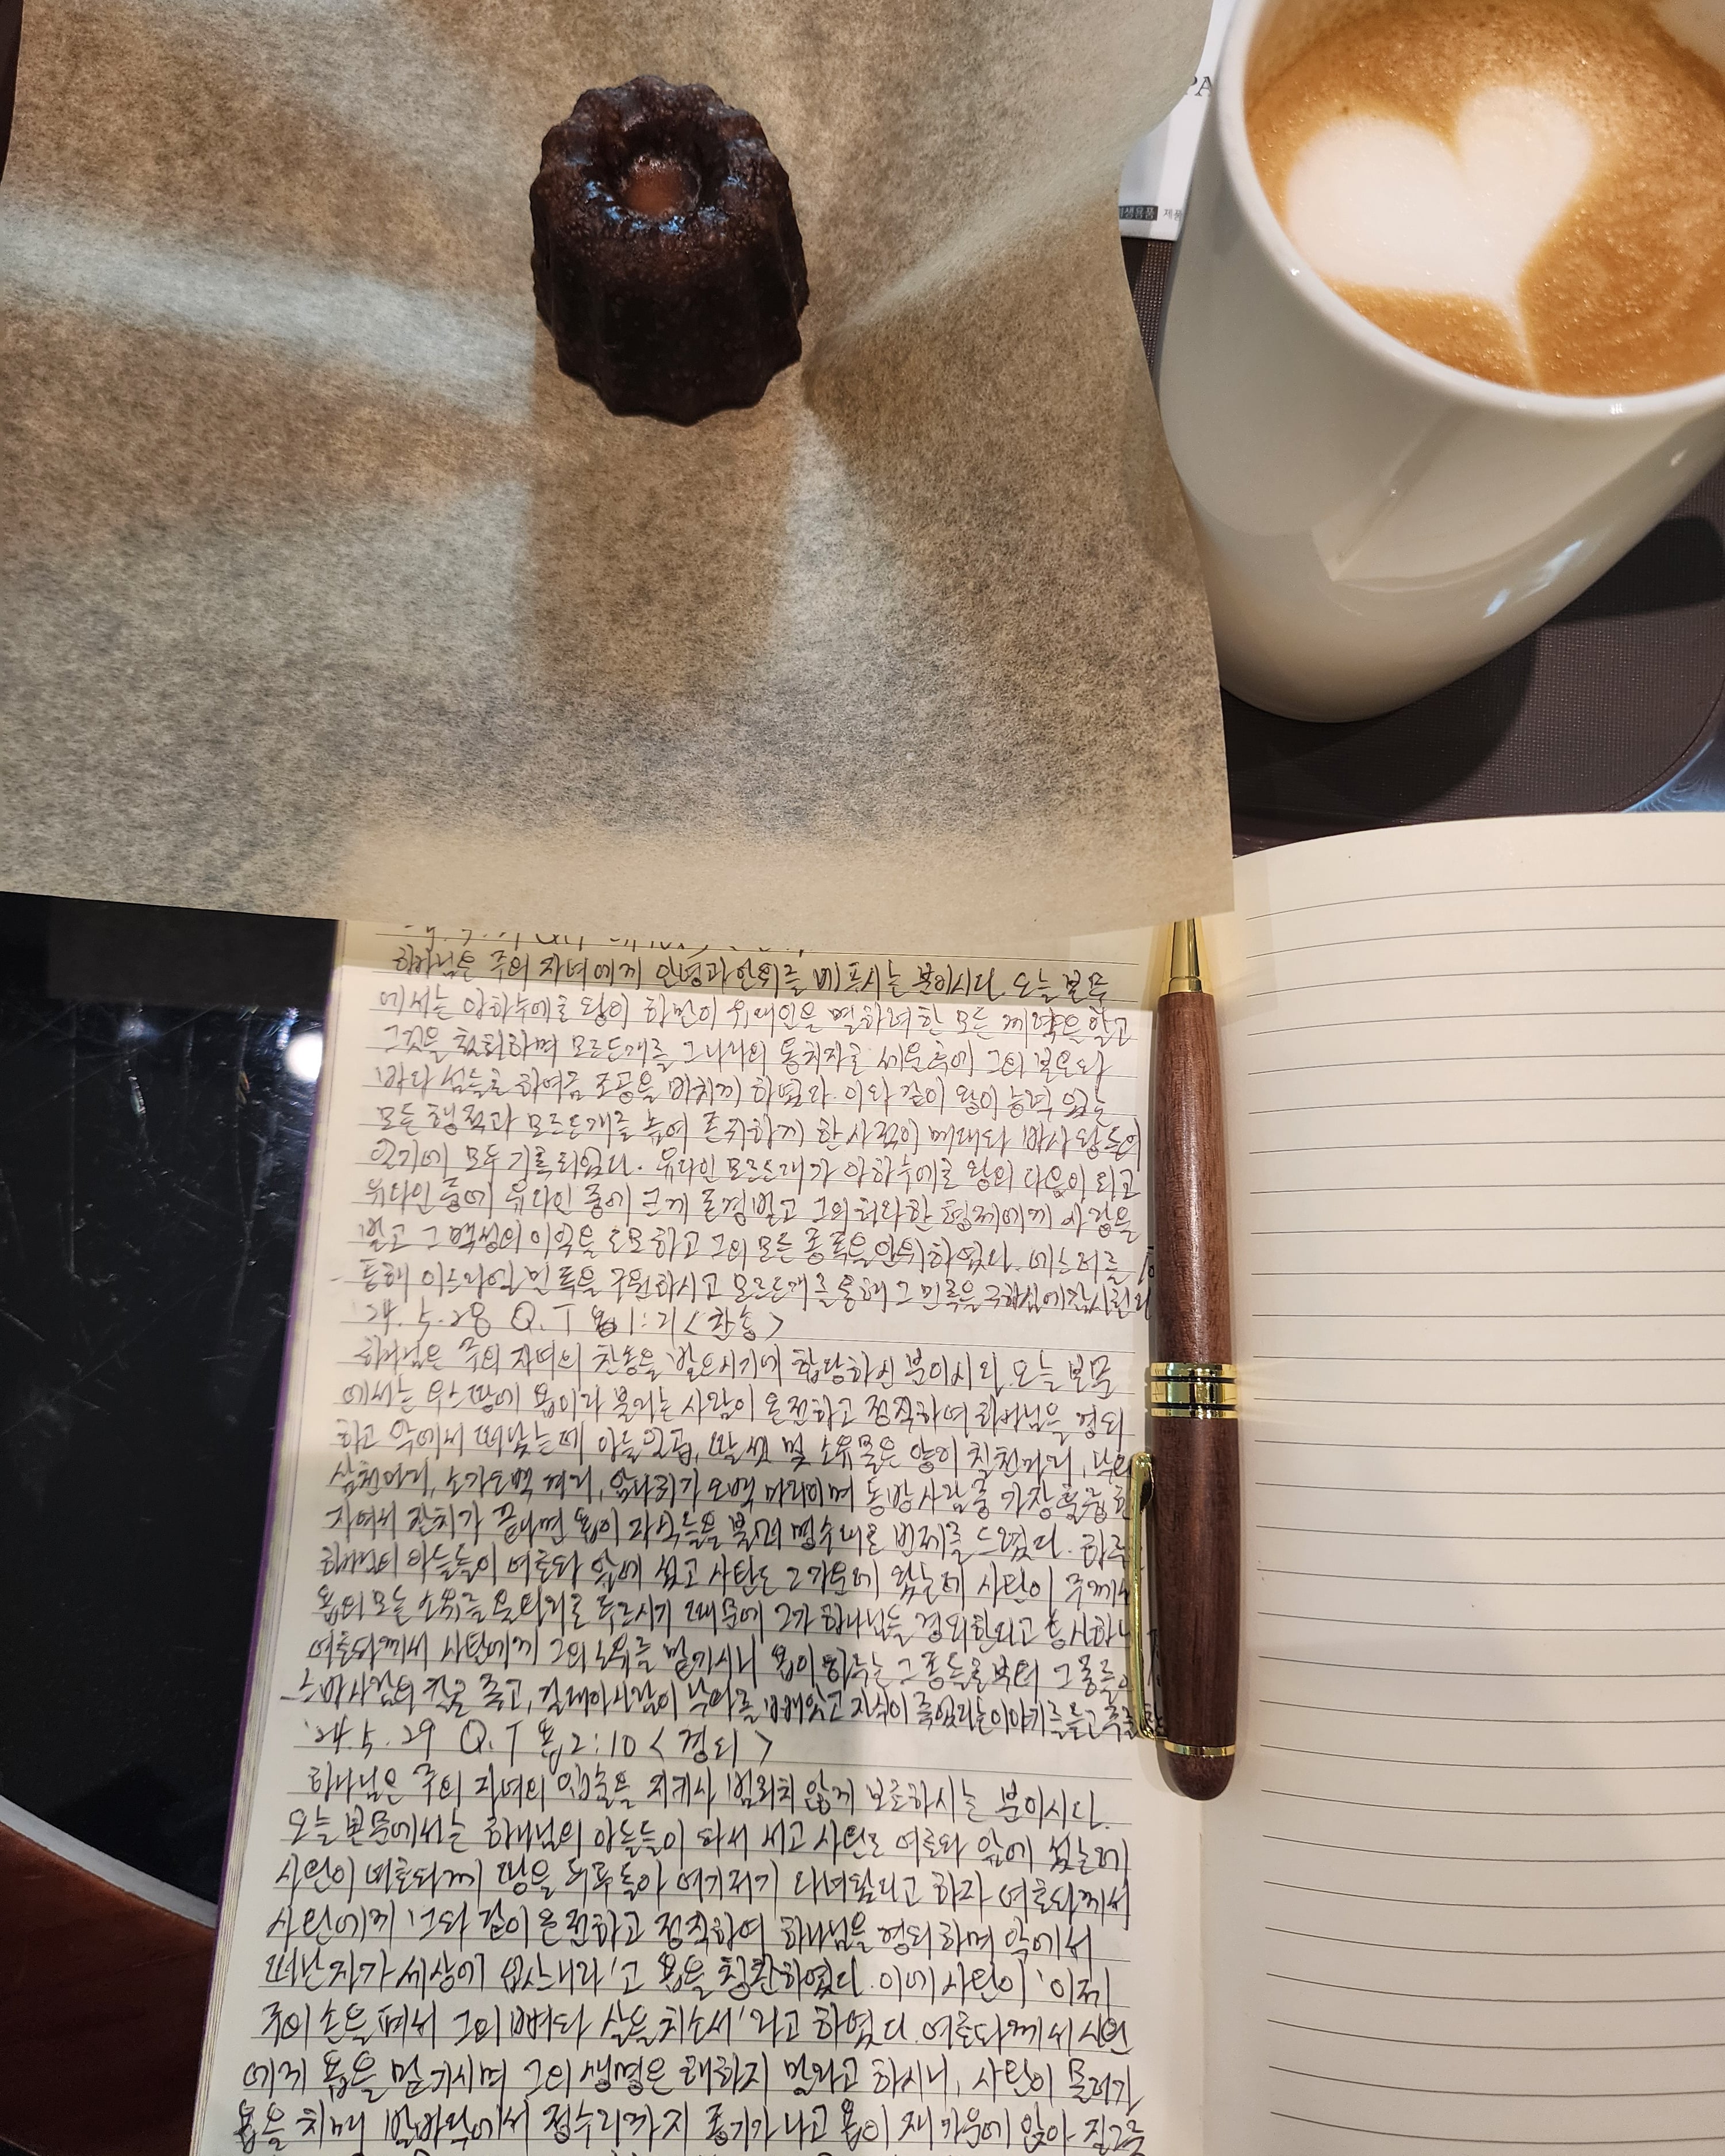 PA
하나님은 주의 자녀에게 안녕과 안위를 베푸시는 분이시다. 오늘 본문
에서는 아하수에로 왕이 하만이 유대인을 멸하려한 모든 계략을 알고
그것을 철회하며 모르드개를 그 나라의 통치자로 세운 후에 그의 본토와
바다 섬들로 하여금 조공을 바치게 하였다. 이와 같이 왕이 능력 있는
모든 행적과 모르드개를 높여 존귀하게 한 사적이 메대와 바사 왕들의
일기에 모두 기록되었다. 유다인 모르드개가 아하수에로 왕의 다음이 되고
유다인 중에 유다인 중에 크게 존경받고 그의 허다한 형제에게 사랑을
받고 그 백성의 이익을 도모하고 그의 모든 종족을 안위하였다. 에스더를
통해 이스라엘 민족을 구원하시고 모르드개를 통해 그 민족을
'24. 5. 28 Q.T 욥 1:21 <찬송>
하나님은 주의 자녀의 찬송을 받으시기에 합당하신 분이시다. 오늘 본문
에서는 우스 땅에 욥이라 불리는 사람이 온전하고 정직하여 하나님을 경외
하고 악에서 떠났는데 아들 일곱, 딸 셋 및 소유물은 양이 칠천마리, 낙타
삼천마리, 소가 오백 겨리, 암나귀가 오백 마리이며 동방사람 중 가장 훌륭한
자여서 잔치가 끝나면 욥이 자식들을 불러 명수대로 번제를 드렸다. 하루
하나님의 아들들이 여호와 앞에 섰고 사탄도 그 가운데 왔는데 사탄이 주께서
욥의 모든 소유를 울타리로 두르시기 때문에 그가 하나님을 경외한다고
여호와께서 사탄에게 그의 소유를 맡기시니 욥이 하루는 그 종들로부터
스바 사람의 칼로 죽고, 갈대아 사람이 낙타를 빼앗고 자식이 죽었다는 이야기를 듣고
'24. 5. 29 Q.T 욥 2:10 <경외>
하나님은 주의 자녀의 입술을 지키사 범죄치 않게 보호하시는 분이시다.
오늘 본문에서는 하나님의 아들들이 와서 서고 사탄도 여호와 앞에 섰는데
사탄이 여호와께 땅을 두루 돌아 여기저기 다녀왔다고 하자 여호와께서
사탄에게 '그와 같이 온전하고 정직하여 하나님을 경외하며 악에서
떠난 자가 세상에 없느니라'고 욥을 칭찬하였다. 이에 사탄이 '이제
주의 손을 펴서 그의 뼈와 살을 치소서'라고 하였다. 여호와께서 사탄
에게 욥을 맡기시며 그의 생명은 해하지 말라고 하시니, 사탄이 물러가
욥을 치매 발바닥에서 정수리까지 종기가 나고 욥이 재 가운데 앉아 질그릇